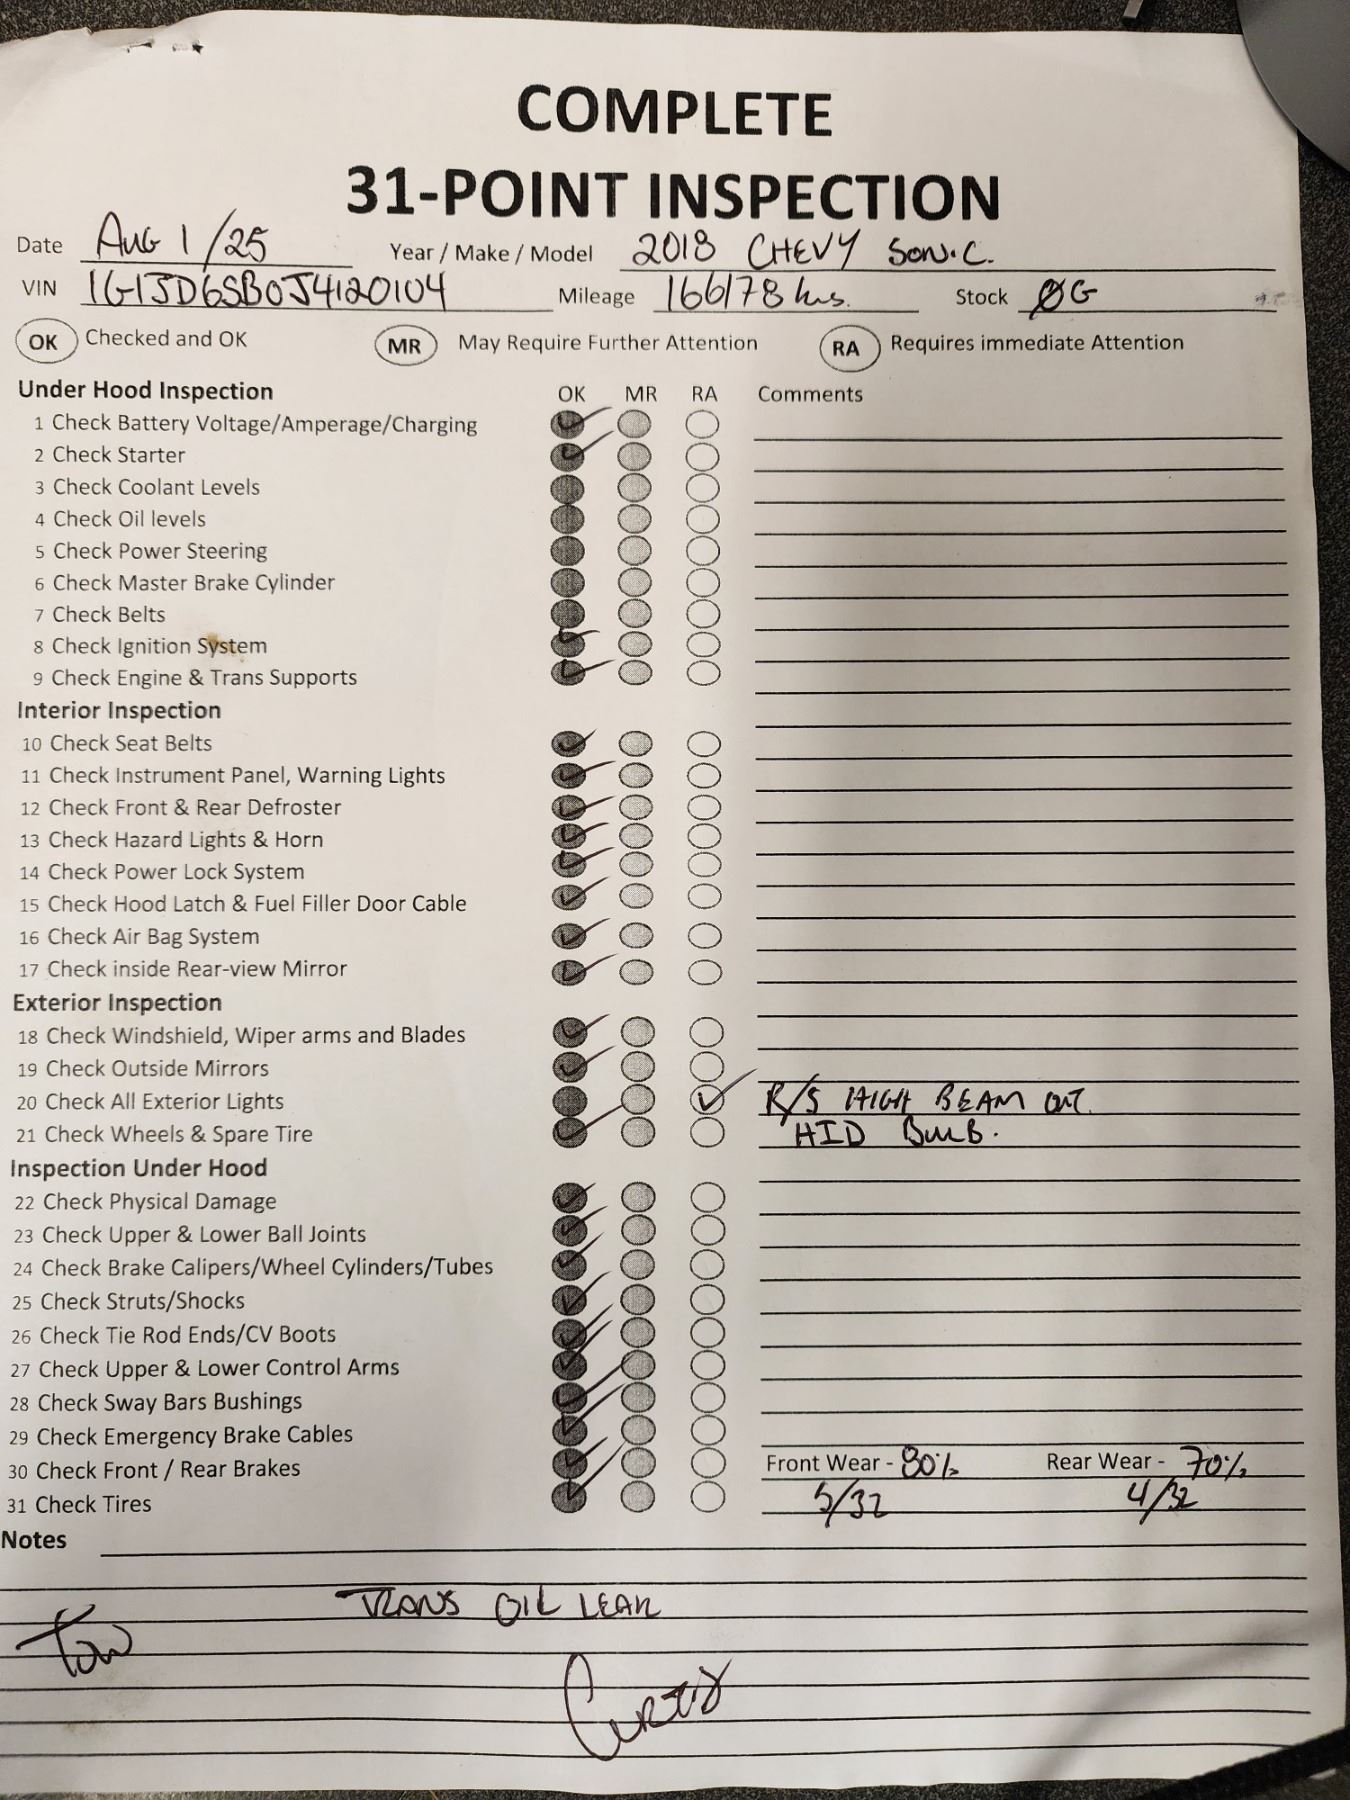 COMPLETE
31-POINT INSPECTION
Date AUG 1/25 Year / Make / Model 2018 CHEVY SONIC.
VIN 1G1JD6SB0J4120104 Mileage 166178 kms. Stock ØG
OK Checked and OK MR May Require Further Attention RA Requires immediate Attention
Under Hood Inspection OK MR RA Comments
1 Check Battery Voltage/Amperage/Charging
2 Check Starter
3 Check Coolant Levels
4 Check Oil levels
5 Check Power Steering
6 Check Master Brake Cylinder
7 Check Belts
8 Check Ignition System
9 Check Engine & Trans Supports
Interior Inspection
10 Check Seat Belts
11 Check Instrument Panel, Warning Lights
12 Check Front & Rear Defroster
13 Check Hazard Lights & Horn
14 Check Power Lock System
15 Check Hood Latch & Fuel Filler Door Cable
16 Check Air Bag System
17 Check inside Rear-view Mirror
Exterior Inspection
18 Check Windshield, Wiper arms and Blades
19 Check Outside Mirrors
20 Check All Exterior Lights R/S HIGH BEAM OUT.
21 Check Wheels & Spare Tire HID BULB.
Inspection Under Hood
22 Check Physical Damage
23 Check Upper & Lower Ball Joints
24 Check Brake Calipers/Wheel Cylinders/Tubes
25 Check Struts/Shocks
26 Check Tie Rod Ends/CV Boots
27 Check Upper & Lower Control Arms
28 Check Sway Bars Bushings
29 Check Emergency Brake Cables
30 Check Front / Rear Brakes Front Wear - 80% Rear Wear - 70%
31 Check Tires 5/32 4/32
Notes
TRANS OIL LEAK
Tow
Curtis